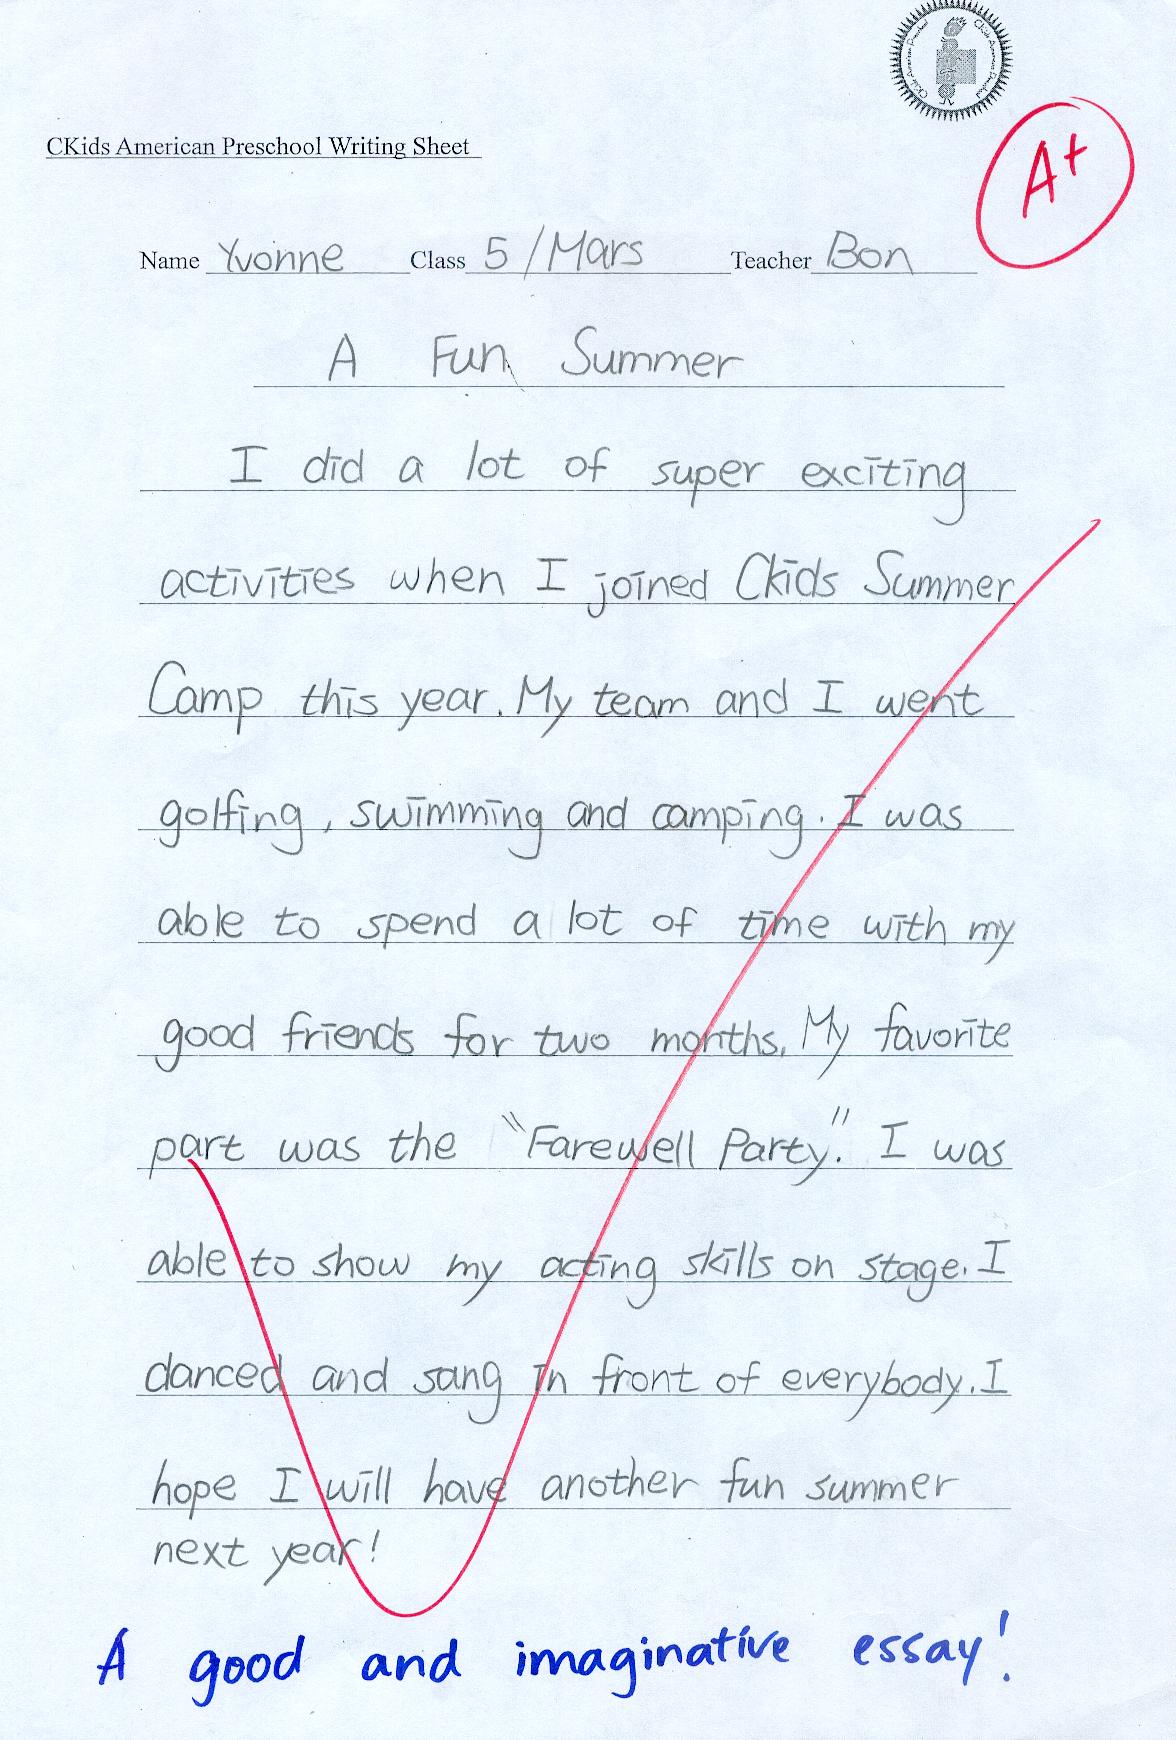 CKids American Preschool Writing Sheet
A+
Name Yvonne Class 5/Mars Teacher Bon
A Fun Summer
I did a lot of super exciting
activities when I joined Ckids Summer
Camp this year. My team and I went
golfing, swimming and camping. I was
able to spend a lot of time with my
good friends for two months. My favorite
part was the "Farewell Party." I was
able to show my acting skills on stage. I
danced and sang in front of everybody. I
hope I will have another fun summer
next year!
A good and imaginative essay!